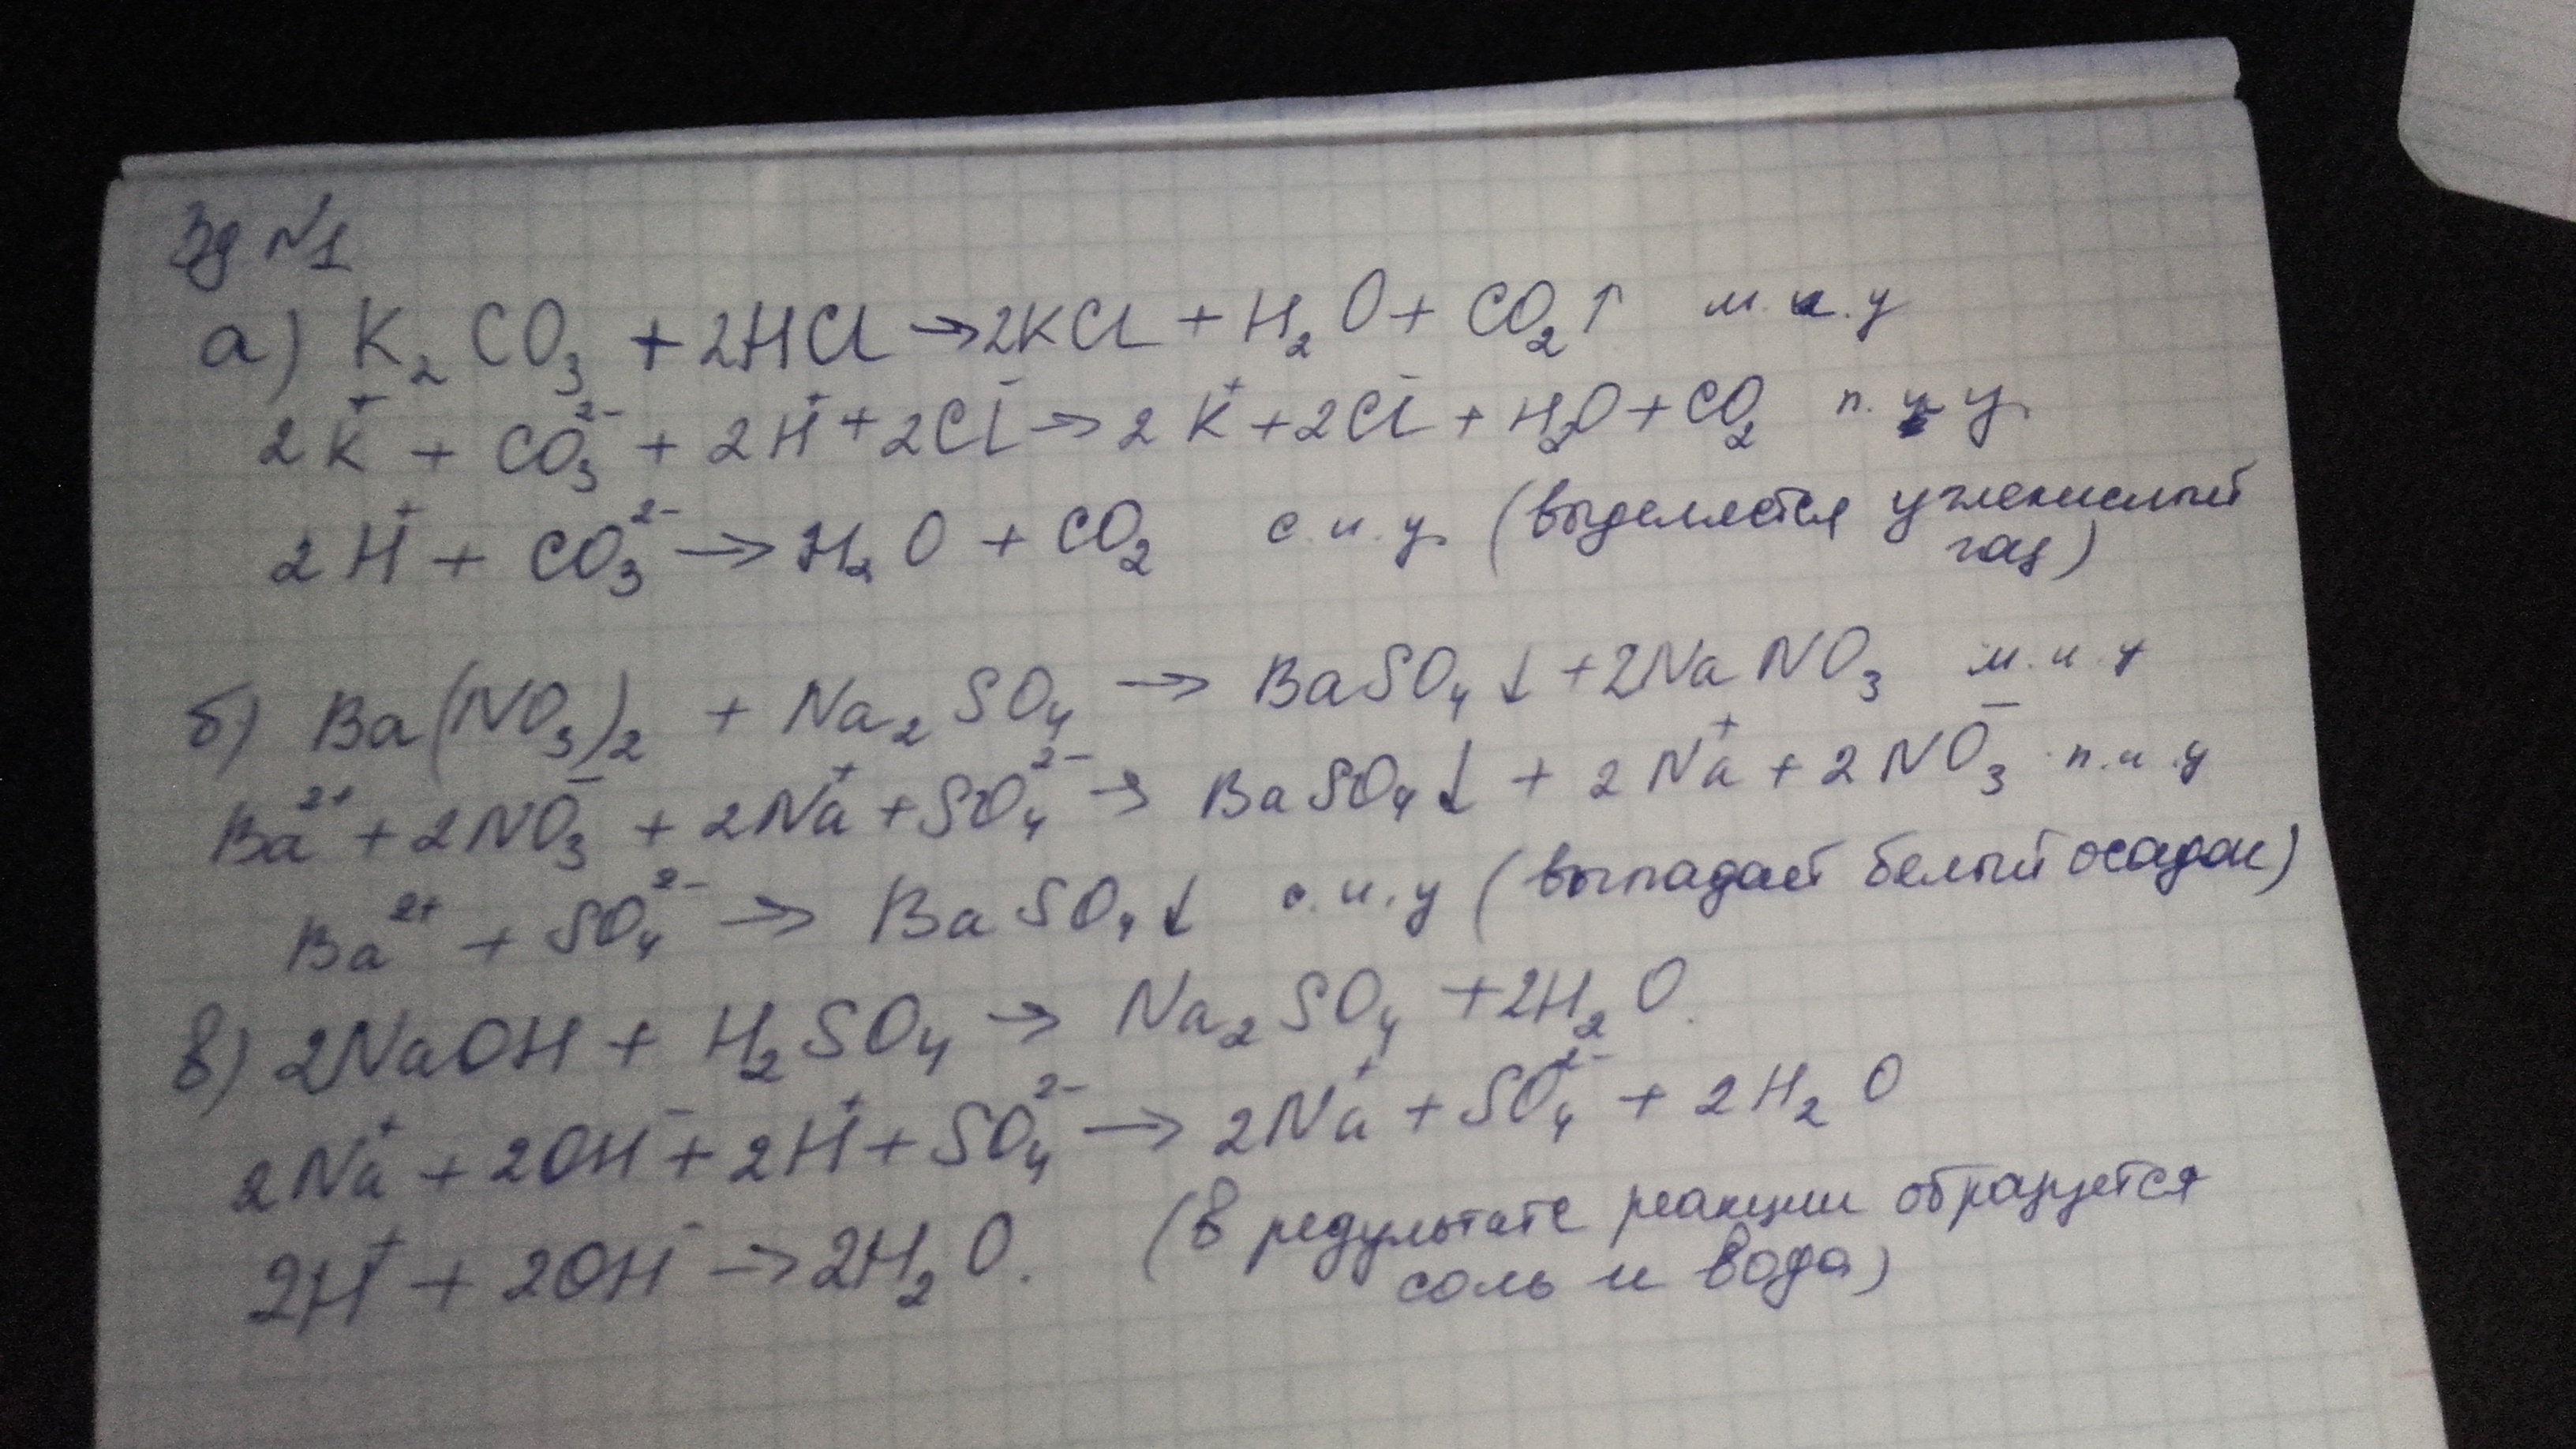 Зд №1
а) K₂CO₃ + 2HCl → 2KCl + H₂O + CO₂↑ м.и.у
2K⁺ + CO₃²⁻ + 2H⁺ + 2Cl⁻ → 2K⁺ + 2Cl⁻ + H₂O + CO₂ п.и.у.
2H⁺ + CO₃²⁻ → H₂O + CO₂ с.и.у. (выделяется углекислый
газ)
б) Ba(NO₃)₂ + Na₂SO₄ → BaSO₄↓ + 2NaNO₃ м.и.у
Ba²⁺ + 2NO₃⁻ + 2Na⁺ + SO₄²⁻ → BaSO₄↓ + 2Na⁺ + 2NO₃⁻ п.и.у
Ba²⁺ + SO₄²⁻ → BaSO₄↓ с.и.у (выпадает белый осадок)
в) 2NaOH + H₂SO₄ → Na₂SO₄ + 2H₂O.
2Na⁺ + 2OH⁻ + 2H⁺ + SO₄²⁻ → 2Na⁺ + SO₄²⁻ + 2H₂O
2H⁺ + 2OH⁻ → 2H₂O. (в результате реакции образуется
соль и вода)